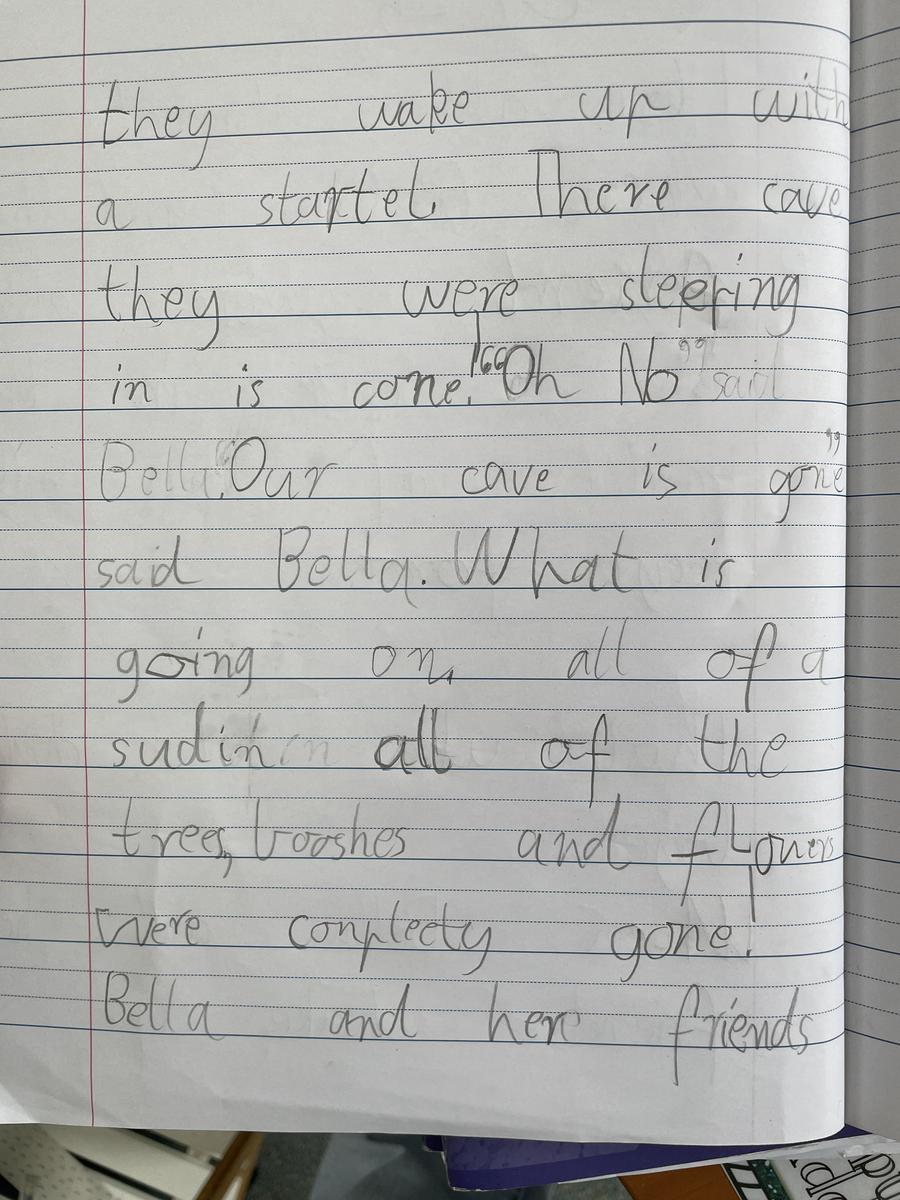 they wake up with
a startel. There cave
they were sleeping
in is cone! “Oh No” said
Bella. “Our cave is gone”
said Bella. What is
going on, all of a
sudin all of the
trees, booshes and flowers
Were conpleety gone!
Bella and her friends